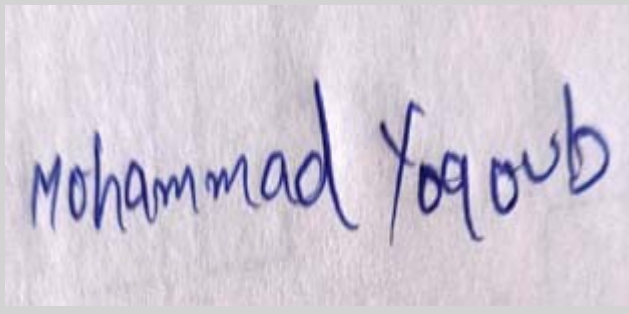 Mohammad Yoqoub